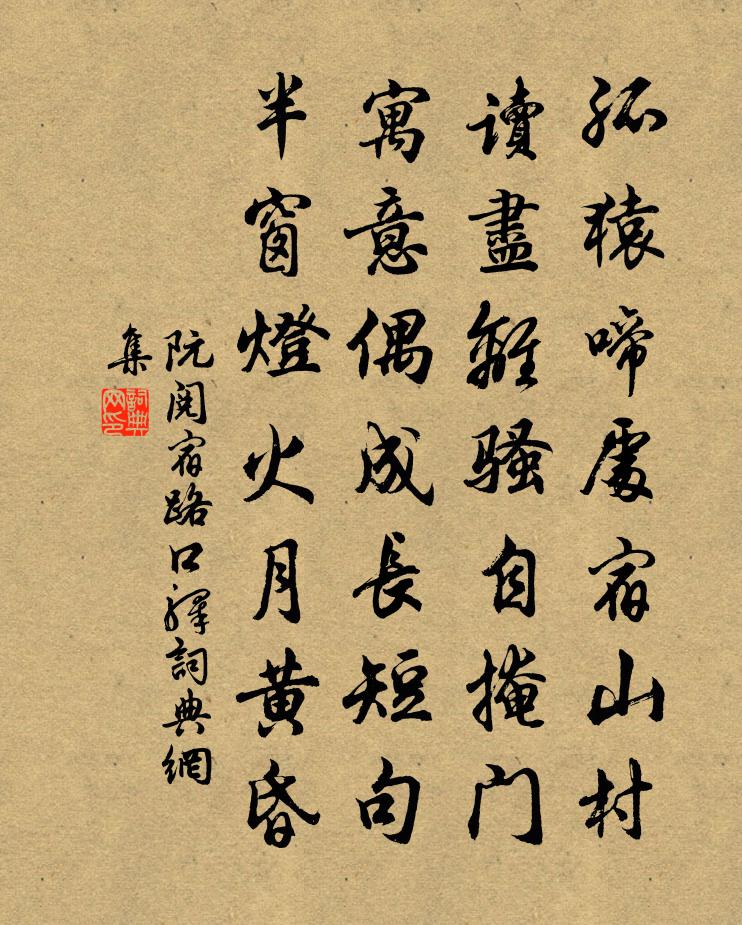 孤猿啼處宿山村
讀盡離騷自掩門
寓意偶成長短句
半窗燈火月黃昏
阮閱宿路口驛詞典網
集
詞典
网印